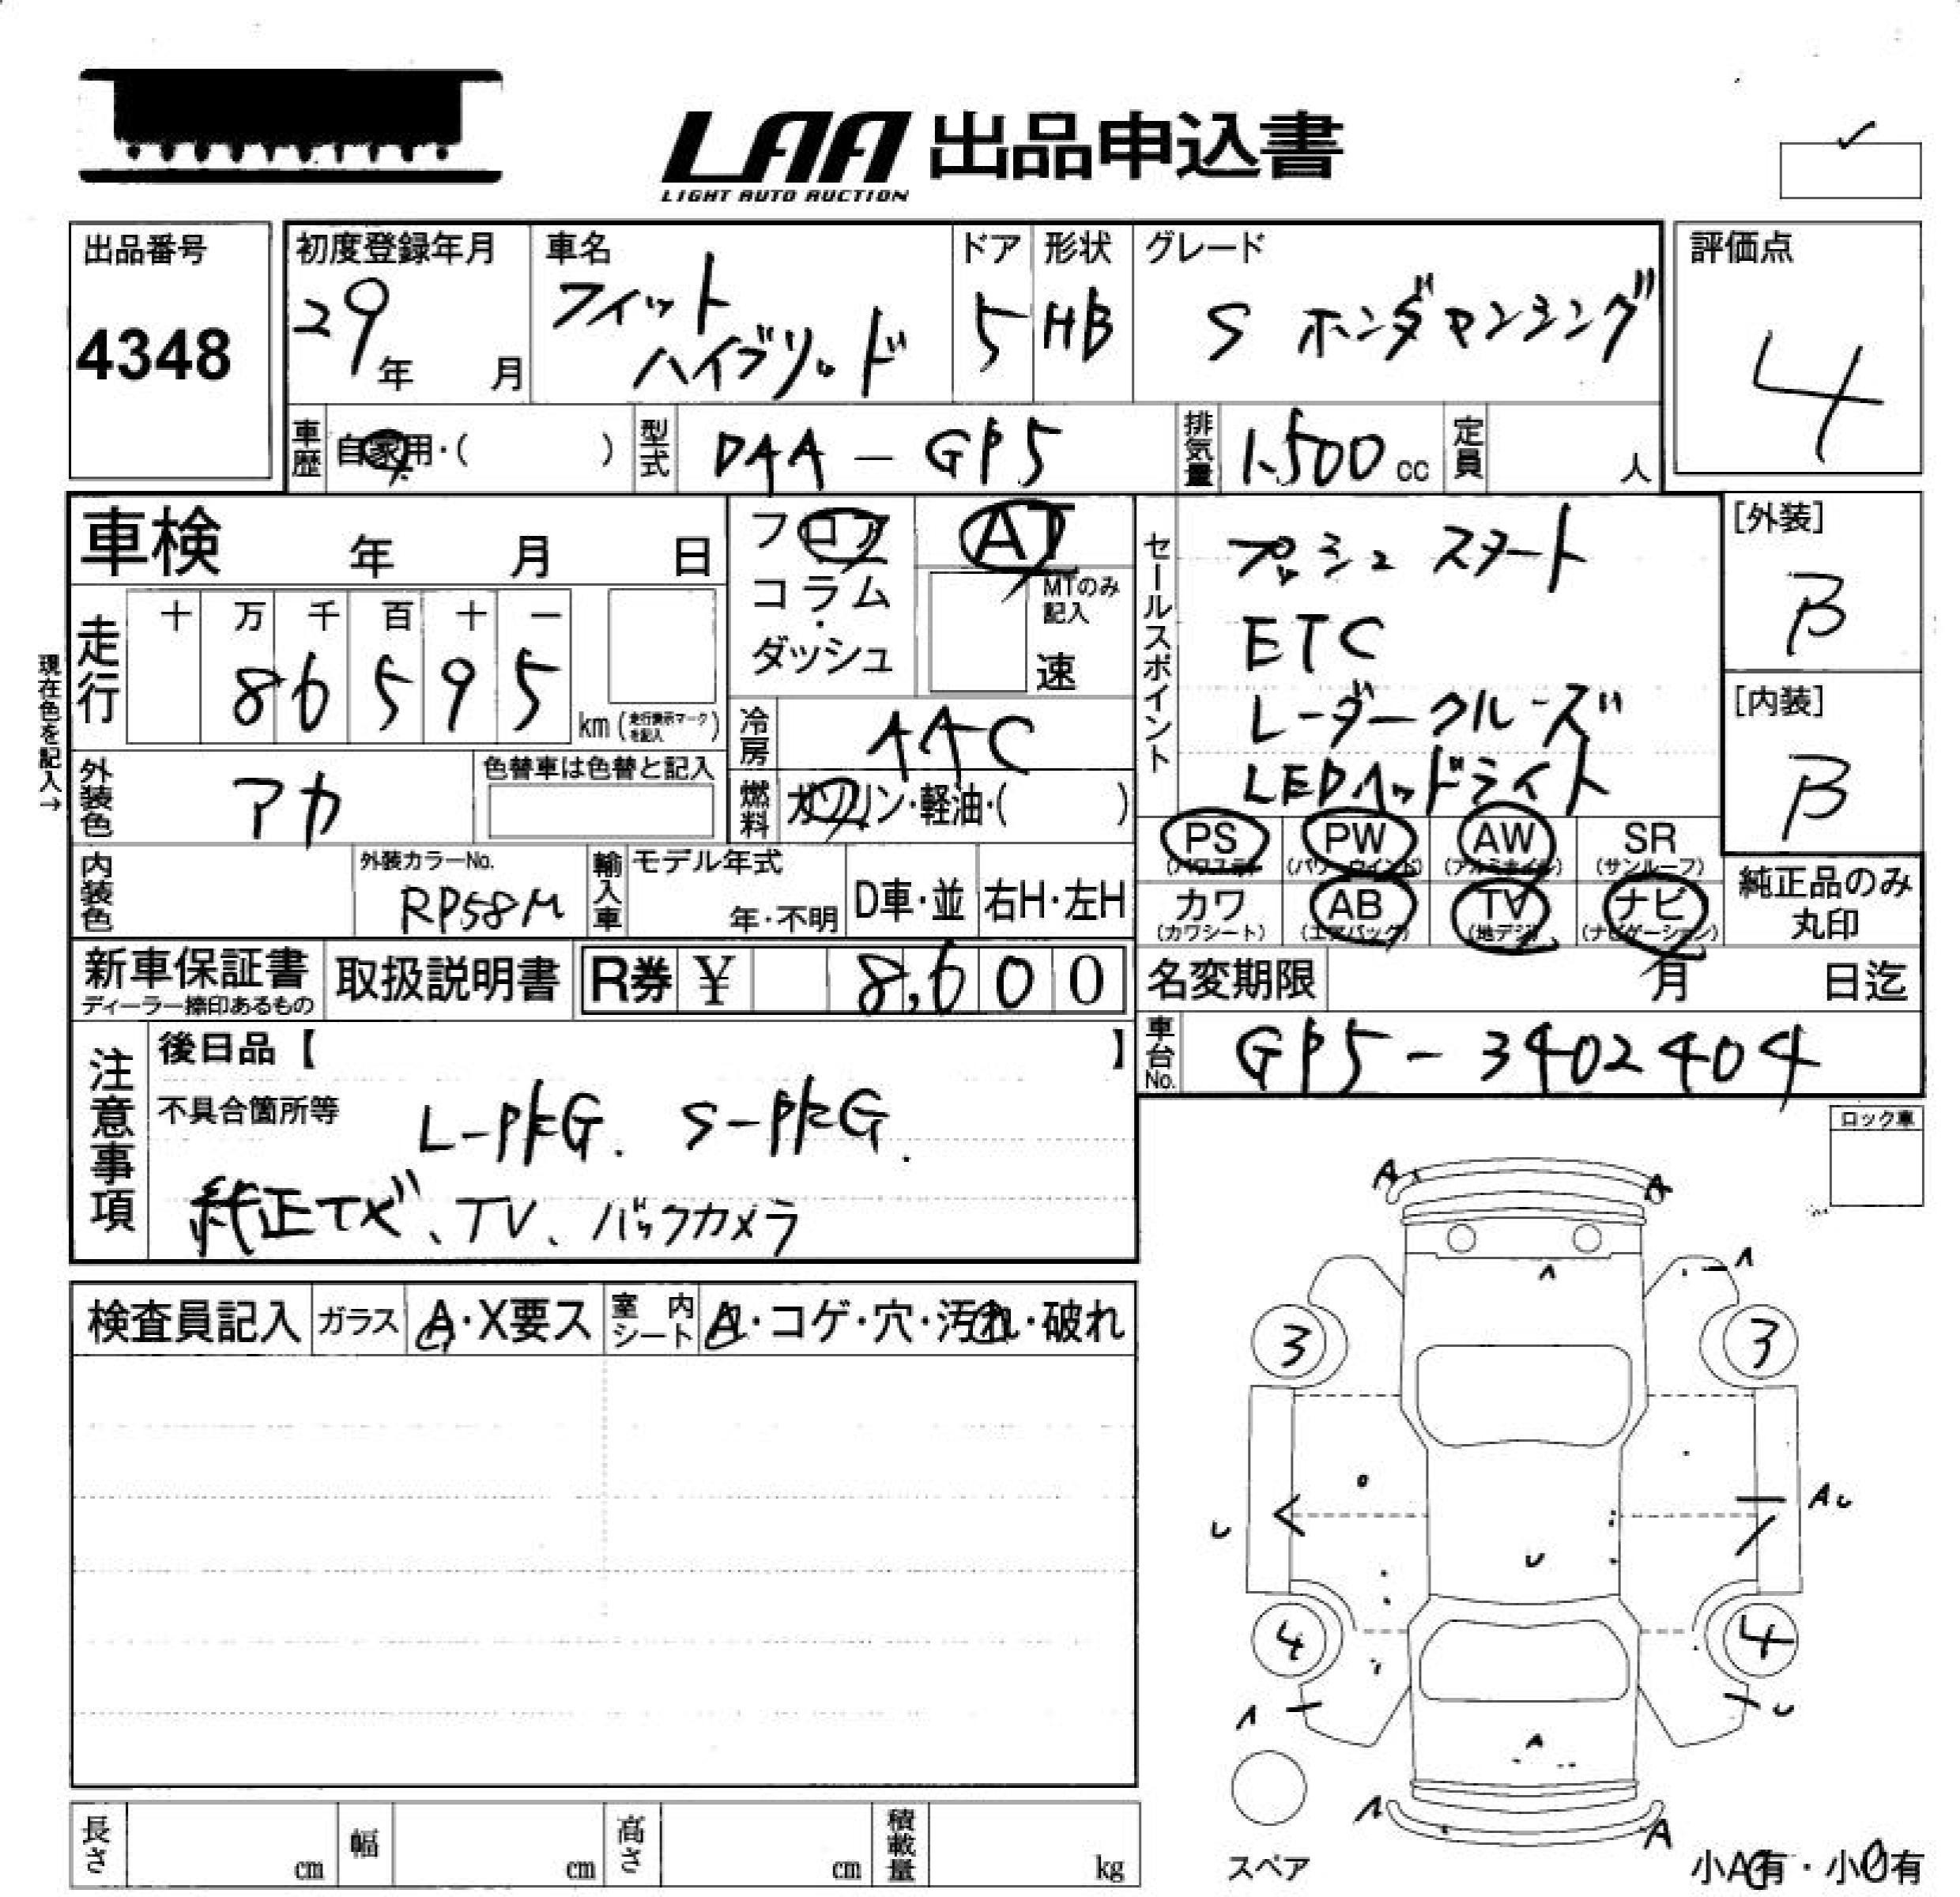 LAA 出品申込書
LIGHT AUTO AUCTION
出品番号
4348
初度登録年月
29年 月
車名
フィット
ハイブリッド
ドア
5
形状
HB
グレード
S ホンダセンシング
評価点
4
車歴 自家用・( )
型式 DAA-GP5
排気量 1,500cc
定員 人
車検 年 月 日
フロア
コラム
・
ダッシュ
AT
MTのみ
記入
速
セールスポイント
プッシュ スタート
ETC
レーダークルーズ
LEDヘッドライト
[外装]
B
[内装]
B
現在色を記入→
走行
十 万 千 百 十 一
8 6 5 9 5
km (走行表示マークを記入)
冷房 AAC
燃料 ガソリン・軽油・( )
外装色 アカ
色替車は色替と記入
PS PW AW SR
(パワステ) (パワーウインド) (アルミホイル) (サンルーフ)
カワ AB TV ナビ
(カワシート) (エアバック) (地デジ) (ナビゲーション)
純正品のみ
丸印
内装色
外装カラーNo.
RP58M
輸入車
モデル年式
年・不明
D車・並
右H・左H
新車保証書
ディーラー捺印あるもの
取扱説明書
R券 ¥ 8,600
名変期限 月 日迄
車台No. GP5-3402404
注意事項
後日品【 】
不具合箇所等
純正ナビ、TV、バックカメラ
ロック車
検査員記入
ガラス
A・X要ス
室内シート
・コゲ・穴・汚れ・破れ
A A
A A
3 3
U AU
U
4 4
A U
A
A A
スペア
小A有・小U有
長さ cm
幅 cm
高さ cm
積載量 kg